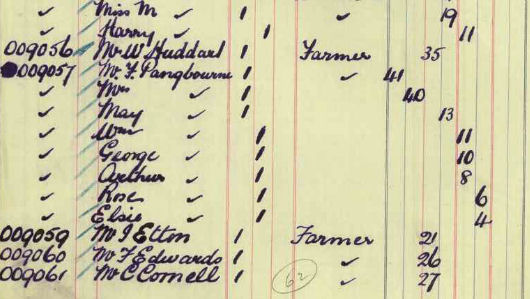 ✓ Miss M ✓ 1 ✓ 19
✓ Harry ✓ 1 11
009056 Mr W Huddart 1 Farmer 35
009057 Mr F. Pangbourne 1 ✓ 41
✓ Mrs ✓ 1 40
✓ May ✓ 1 13
✓ Wm ✓ 1 11
✓ George ✓ 1 10
✓ Arthur ✓ 1 8
✓ Rose ✓ 1 6
✓ Elsie ✓ 1 4
009059 Mr J Etton 1 Farmer 21
009060 Mr F Edwards 1 ✓ 26
009061 Mr C Cornell 1 62 ✓ 27